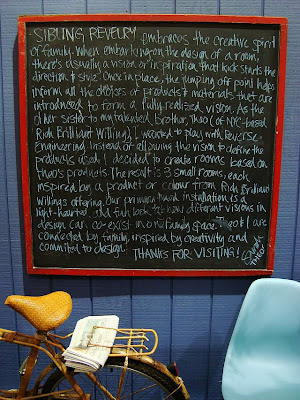 ~ SIBLING REVELRY ~ embraces the creative spirit
of family. When embarking on the design of a room,
there's usually a vision or inspiration that kick starts the
direction & style. Once in place, the jumping off point helps
inform all the choices of products & materials that are
introduced to form a fully-realized vision. As the
older sister to my talented brother, Theo (of NYC-based
Rich Brilliant Willing), I wanted to play with reverse
engineering. Instead of allowing the vision to define the
products used I decided to create rooms based on
Theo's products. The result is 3 small rooms, each
inspired by a product or colour from Rich Brilliant
Willings offering. Our primary fluid installation is a
light-hearted and fun look at how different visions in
design can co-exist in one family space. Theo & I are
connected by family, inspired by creativity and
committed to design. THANKS FOR VISITING!
THEO